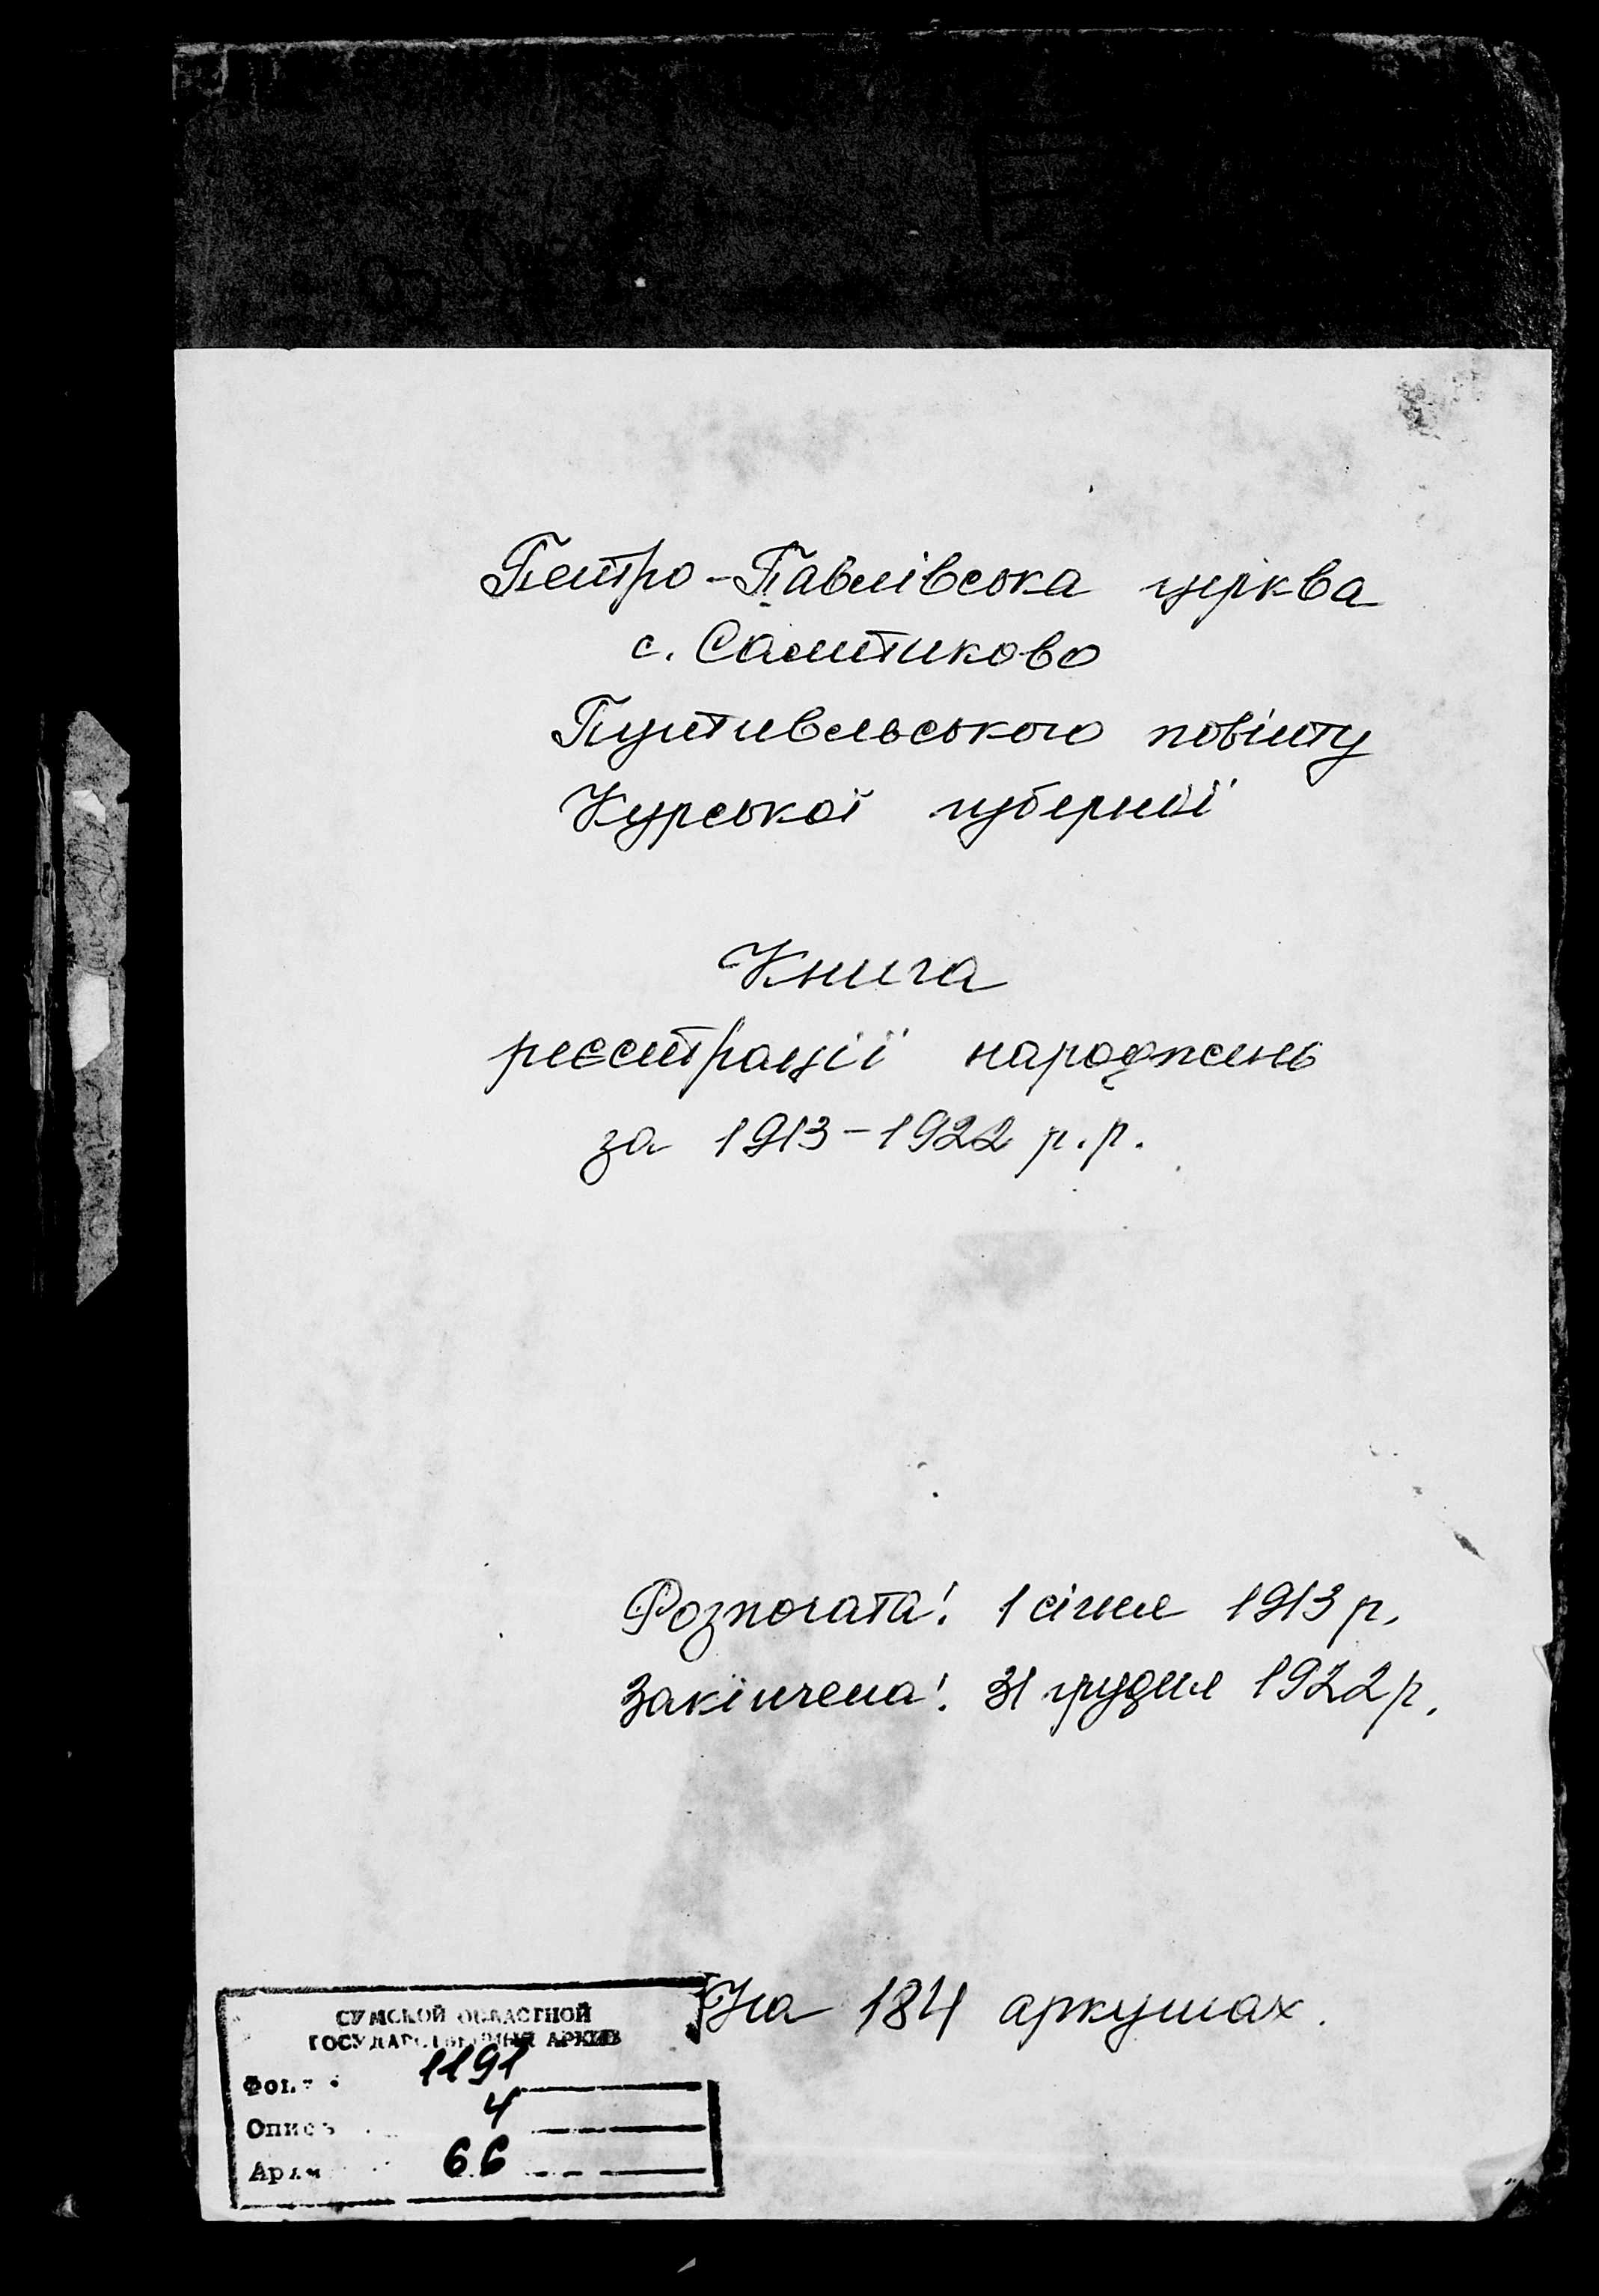 Петро-Павлівська церква
с. Салтиково
Путивльського повіту
Курської губернії
Книга
реєстрації народжень
за 1913-1922 р.р.
Розпочата: 1 січня 1913 р.
Закінчена: 31 грудня 1922 р.
На 184 аркушах.
СУМСКОЙ ОБЛАСТНОЙ
ГОСУДАРСТВЕННЫЙ АРХИВ
Фонд 1191
Опись 4
66